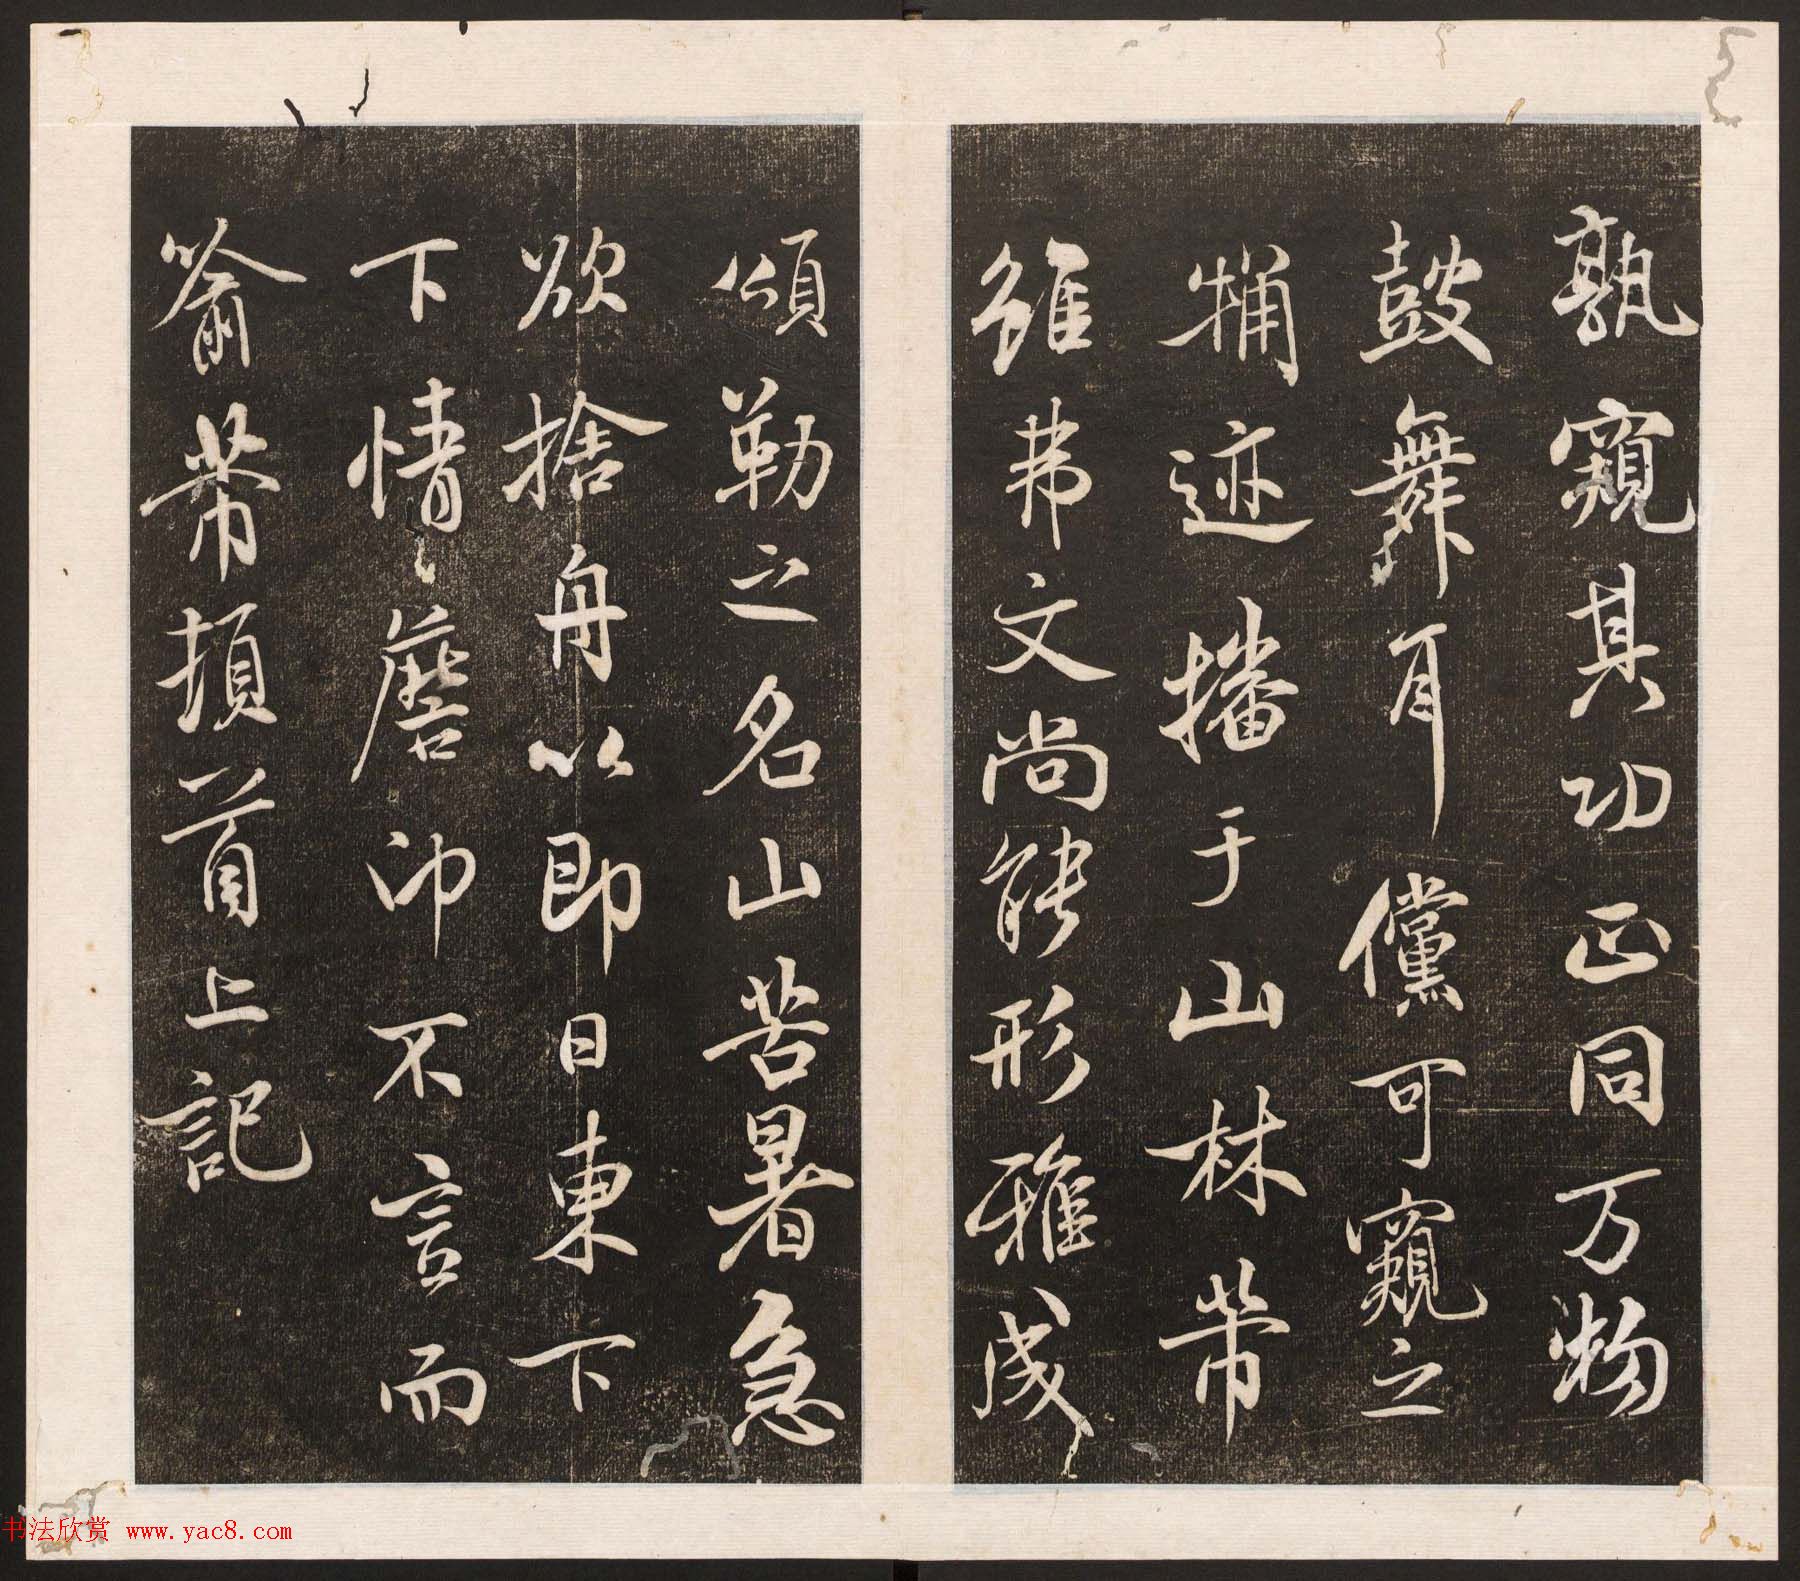 孰窺其功正同万物
鼓舞耳儻可窺之
捕迹播于山林芾
雖弗文尚能形雅
頌勒之名山苦暑急
欲捨舟以即日東下
下情磨 不言而
芾頓首上記
书法欣赏 www.yac8.com